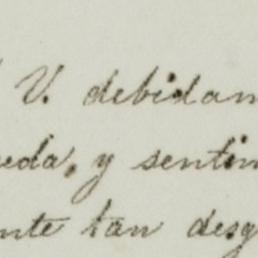 V. debidam
eda, y sentim
nte tan desg